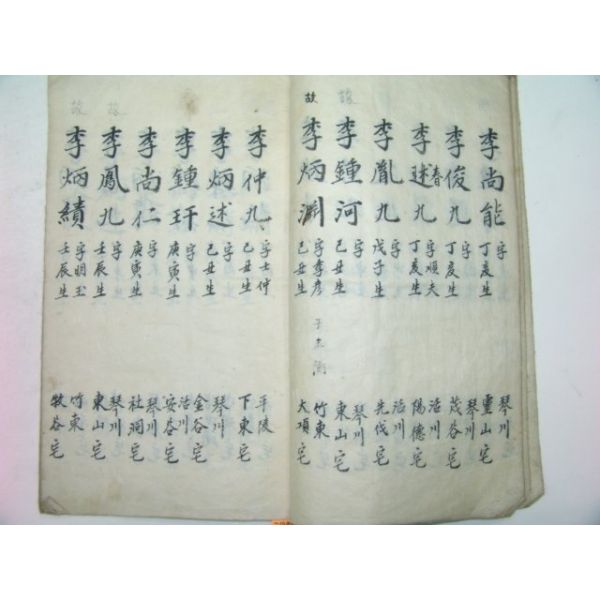 李尚能 字 丁亥生 琴川 靈山宅
李俊九 字 丁亥生 琴川 茂谷宅
李逑九 春 字順夫 丁亥生 活川 陽德宅
李胤九 字 戊子生 活川 先伐宅
李鍾河 字 己丑生 琴川 東山宅
故 李炳淵 字季彦 己丑生 竹東 大項宅
李仲九 字士仲 己丑生 平陵 下東宅
李炳述 字 己丑生 琴川 金谷宅
李鍾玕 字 庚寅生 活川 安谷宅
李尚仁 字 庚寅生 琴川 社洞宅
故 李鳳九 字 壬辰生 琴川 東山宅
故 李炳績 字明玉 壬辰生 竹東 牧谷宅